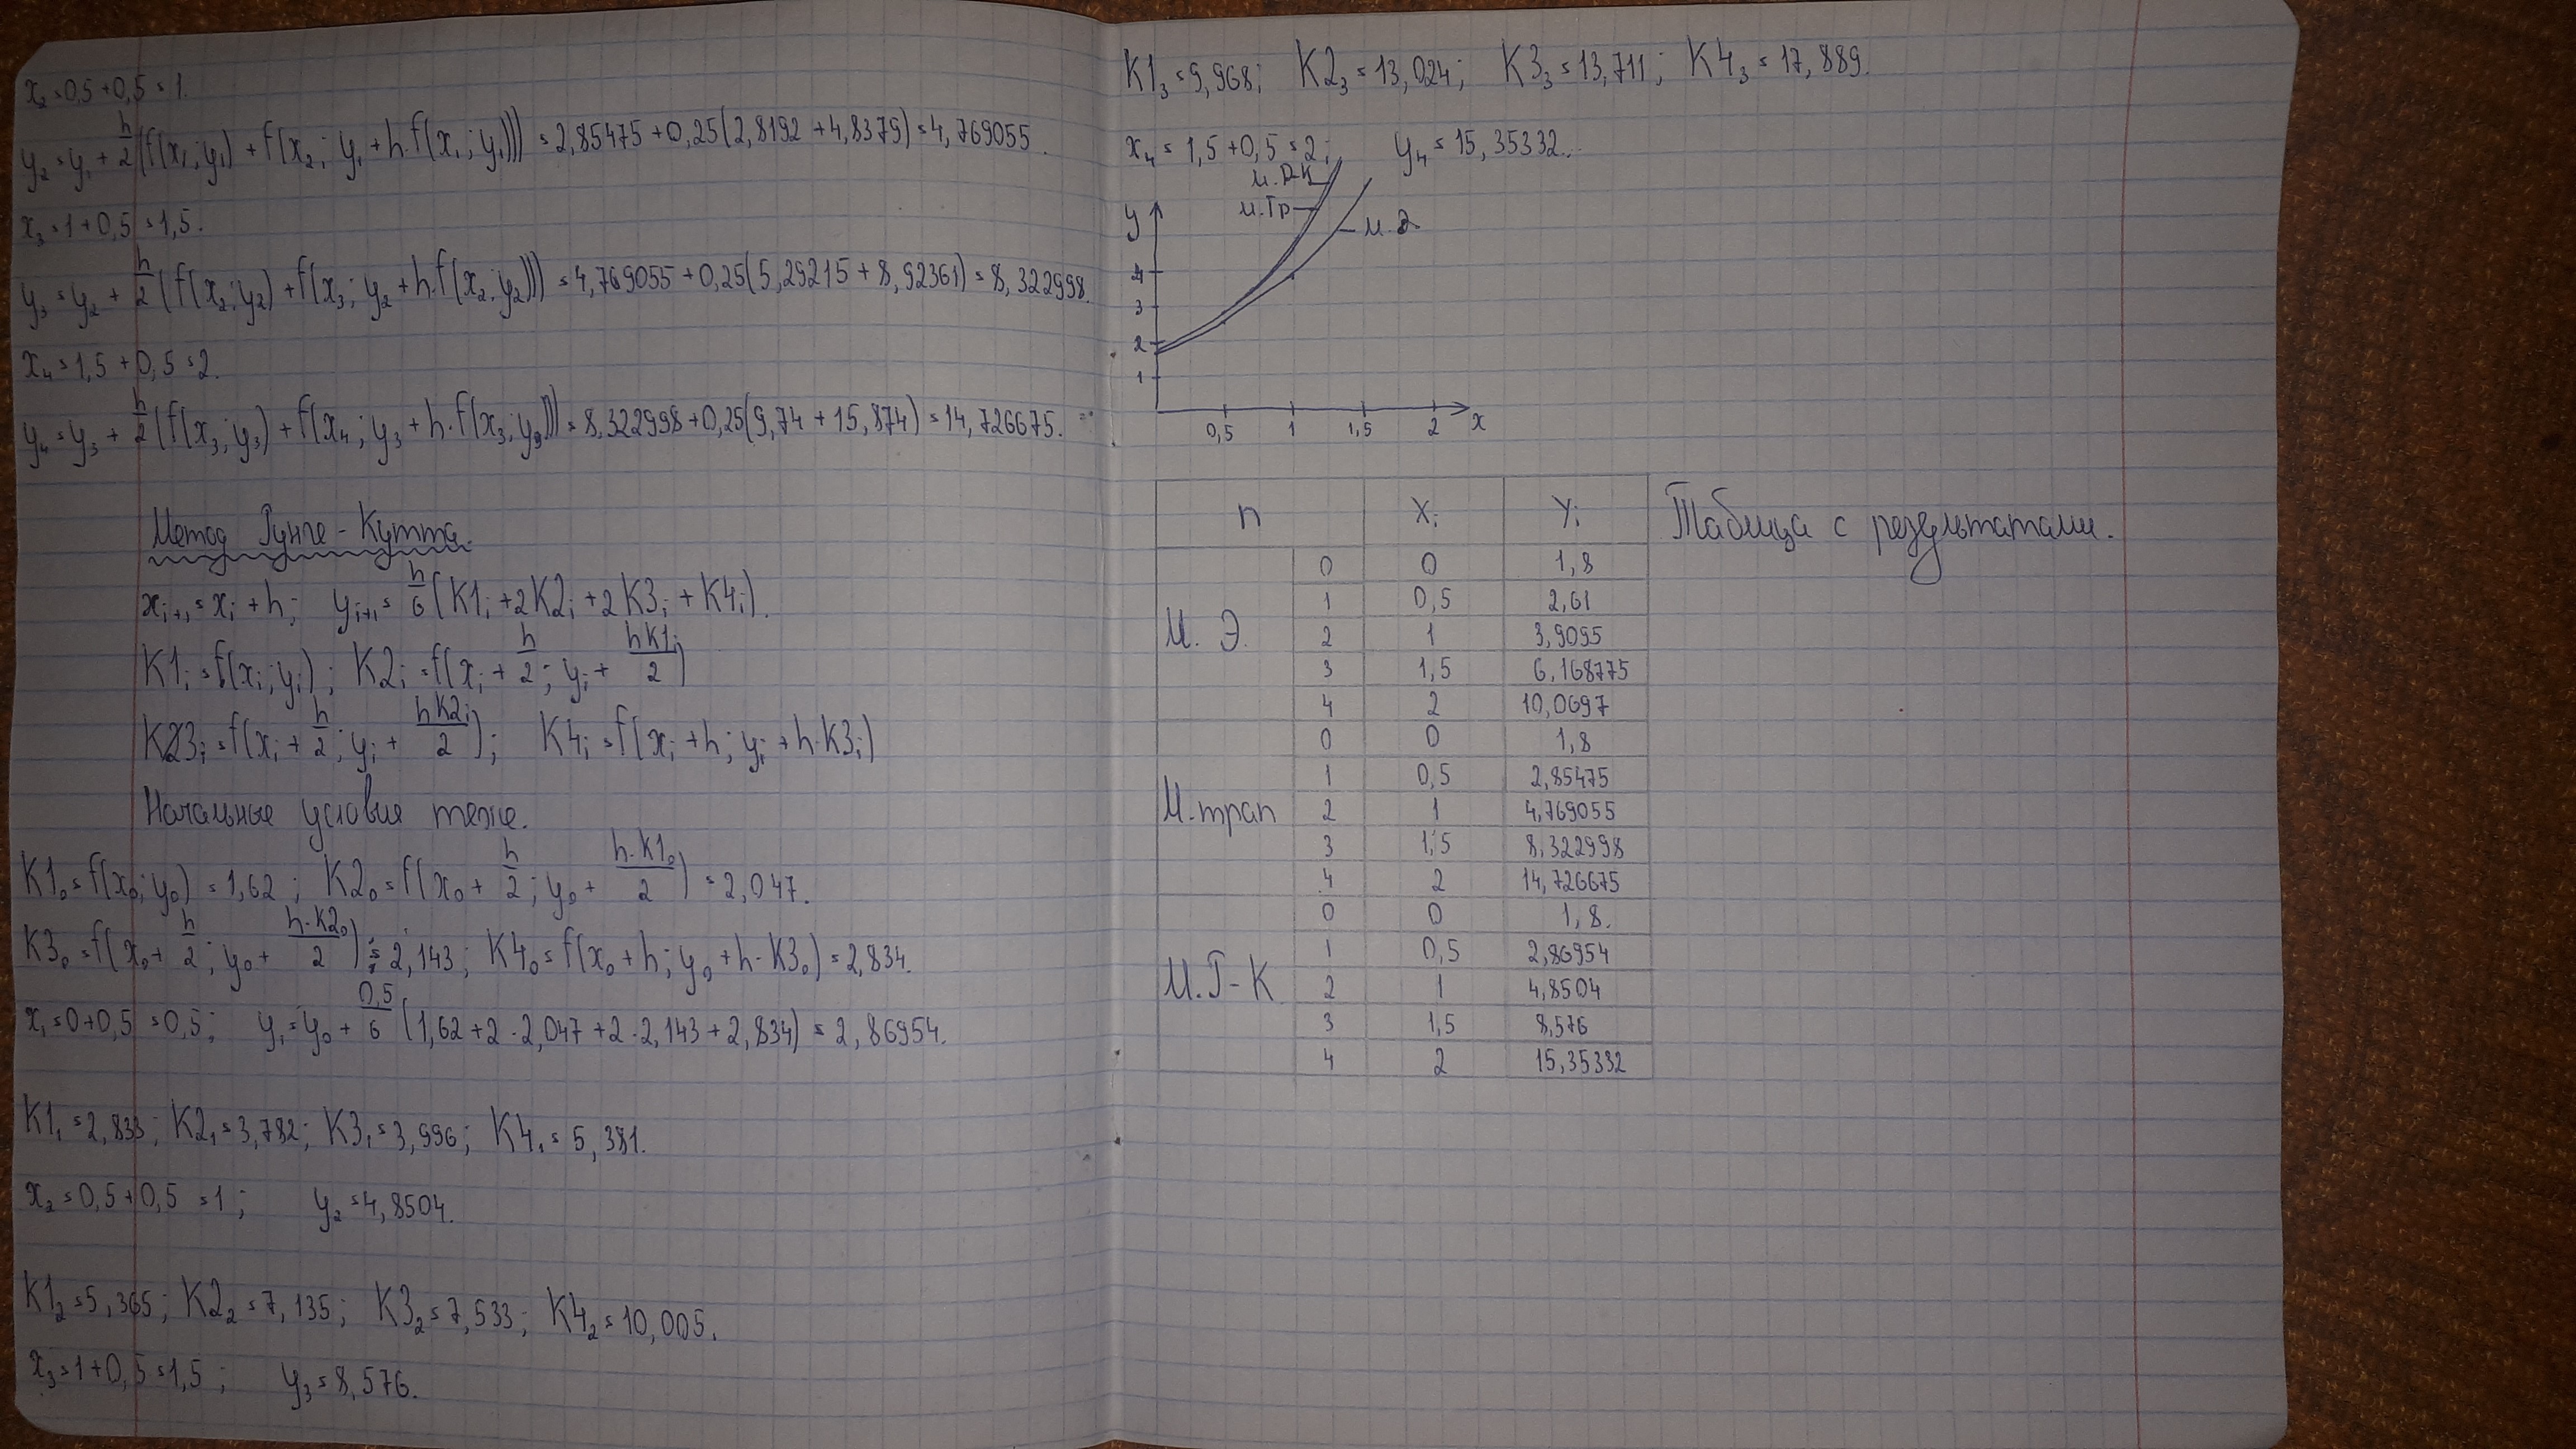 x₂=0,5+0,5=1.
y₂=y₁+h/2(f(x₁;y₁)+f(x₂;y₁+h·f(x₁;y₁)))=2,85475+0,25(2,8192+4,8379)=4,769055.
x₃=1+0,5=1,5.
y₃=y₂+h/2(f(x₂;y₂)+f(x₃;y₂+h·f(x₂;y₂)))=4,769055+0,25(5,29215+8,92361)=8,322998.
x₄=1,5+0,5=2.
y₄=y₃+h/2(f(x₃;y₃)+f(x₄;y₃+h·f(x₃;y₃)))=8,322998+0,25(9,74+15,874)=14,726675.
Метод Рунге-Кутта.
xᵢ₊₁=xᵢ+h; yᵢ₊₁=h/6(K1ᵢ+2K2ᵢ+2K3ᵢ+K4ᵢ).
K1ᵢ=f(xᵢ;yᵢ); K2ᵢ=f(xᵢ+h/2;yᵢ+hK1ᵢ/2)
K3ᵢ=f(xᵢ+h/2;yᵢ+hK2ᵢ/2); K4ᵢ=f(xᵢ+h;yᵢ+h·K3ᵢ)
Начальные условия теже.
K1₀=f(x₀;y₀)=1,62; K2₀=f(x₀+h/2;y₀+h·K1₀/2)=2,047.
K3₀=f(x₀+h/2;y₀+h·K2₀/2)=2,143; K4₀=f(x₀+h;y₀+h·K3₀)=2,834.
x₁=0+0,5=0,5; y₁=y₀+0,5/6(1,62+2·2,047+2·2,143+2,834)=2,86954.
K1₁=2,833; K2₁=3,782; K3₁=3,996; K4₁=5,381.
x₂=0,5+0,5=1; y₂=4,8504.
K1₂=5,365; K2₂=7,135; K3₂=7,533; K4₂=10,005.
x₃=1+0,5=1,5; y₃=8,576.
K1₃=9,968; K2₃=13,024; K3₃=13,711; K4₃=17,889.
x₄=1,5+0,5=2; y₄=15,35332.
м.Р-К
y м.Тр м.Э
4
3
2
1
0,5 1 1,5 2 x
n Xᵢ Yᵢ Таблица с результатами.
0 0 1,8
1 0,5 2,61
М.Э. 2 1 3,9095
3 1,5 6,168775
4 2 10,0697
0 0 1,8
1 0,5 2,85475
М.трап 2 1 4,769055
3 1,5 8,322998
4 2 14,726675
0 0 1,8.
1 0,5 2,86954
М.Р-К 2 1 4,8504
3 1,5 8,576
4 2 15,35332